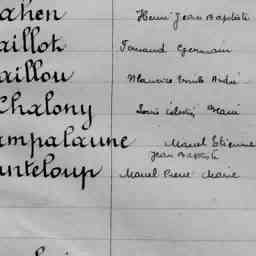 ahen Henri Jean Baptiste
aillot Fernand Germain
aillou Maurice Emile André
Chalony Louis Célestin
ampalaune Marcel Etienne
Jean Baptiste
anteloup Marcel Pierre Marie